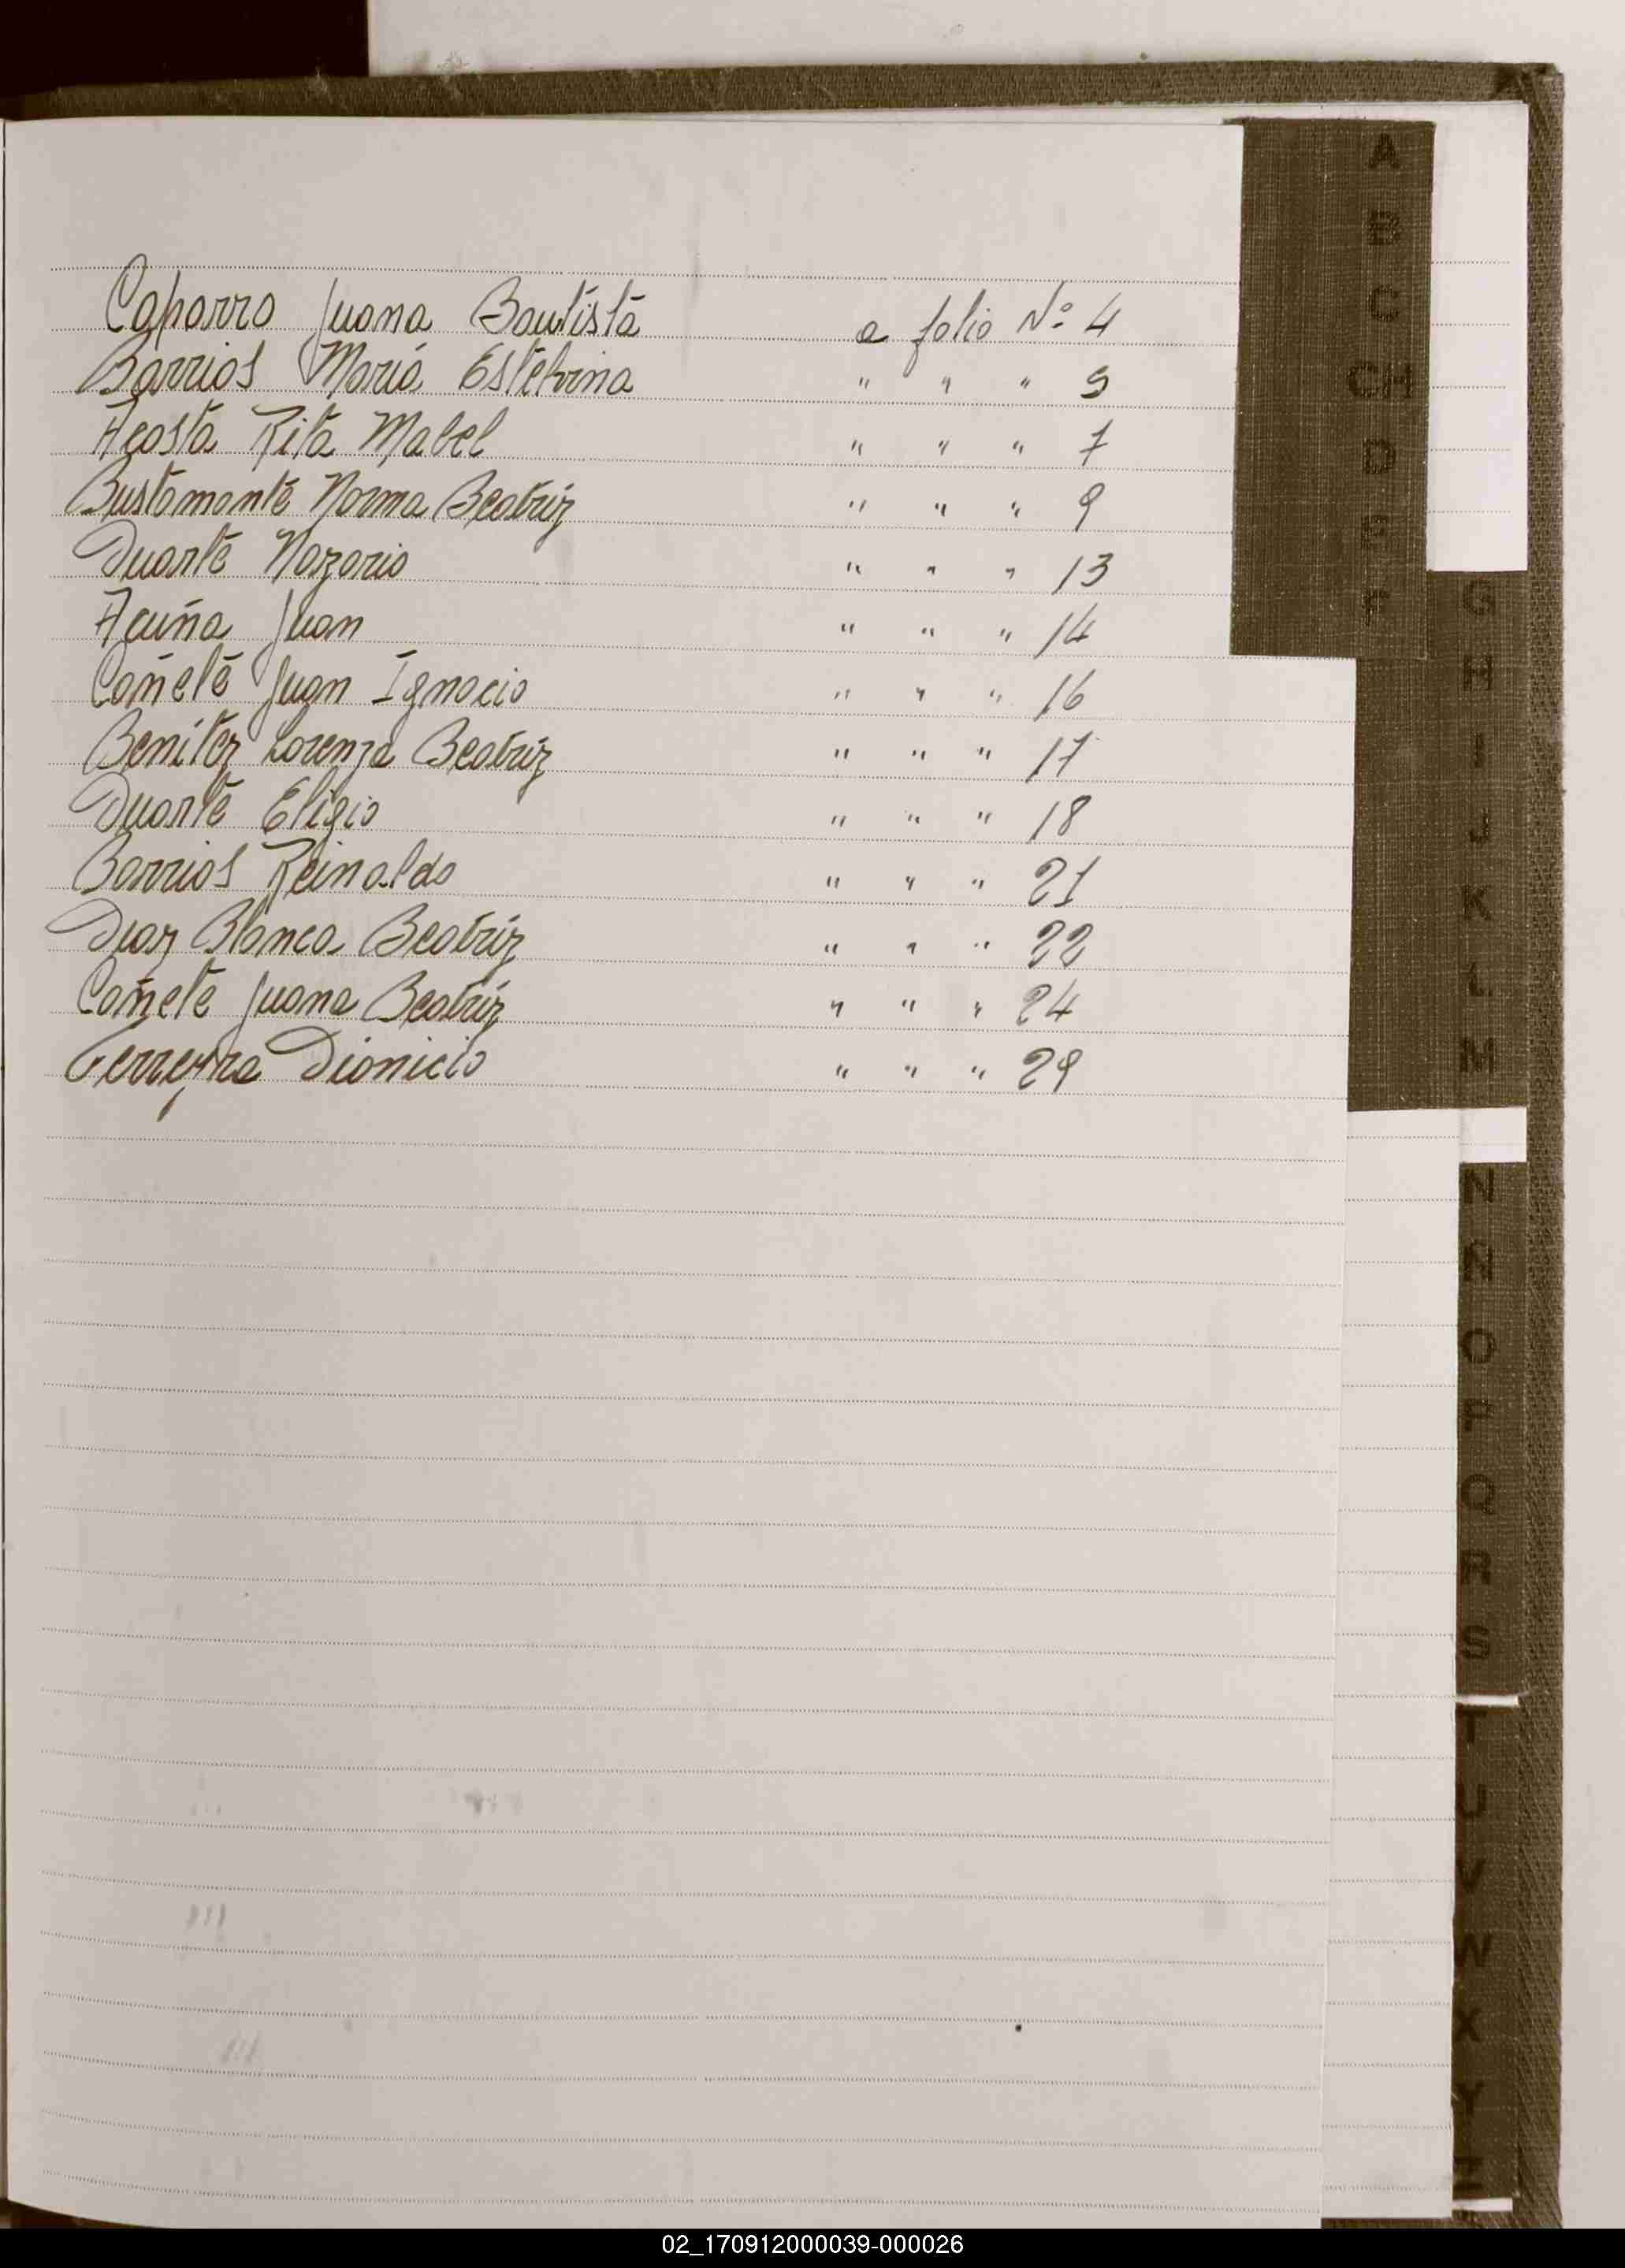 Caparro Juana Bautista a folio Nº 4
Barrios Maria Estelvina " " " 5
Acosta Rita Mabel " " " 7
Bustamante Norma Beatriz " " " 9
Duarte Nazario " " " 13
Acuña Juan " " " 14
Cañete Juan Ignacio " " " 16
Benitez Lorenza Beatriz " " " 17
Duarte Eligio " " " 18
Barrios Reinaldo " " " 21
Diaz Blanca Beatriz " " " 22
Cañete Juana Beatriz " " " 24
Ferreyra Dionicio " " " 29
A
B
C
CH
D
E
F
G
H
I
J
K
L
M
N
Ñ
O
P
Q
R
S
T
U
V
W
X
Y
Z
02_170912000039-000026